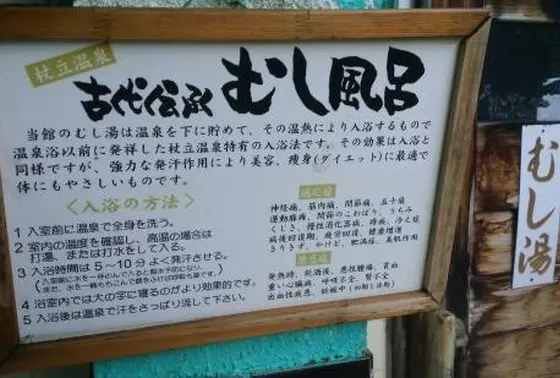 杖立温泉
古代伝承 むし風呂
当館のむし湯は温泉を下に貯めて、その温熱により入浴するもので
温泉浴以前に発祥した杖立温泉特有の入浴法です。その効果は入浴と
同様ですが、強力な発汗作用により美容、痩身(ダイエット)に最適で
体にもやさしいものです。
〈入浴の方法〉
1 入室前に温泉で全身を洗う。
2 室内の温度を確認し、高温の場合は
打湯、または打水をして入る。
3 入浴時間は5~10分よく発汗させる。
4 浴室内では大の字に寝るのがより効果的です。
5 入浴後は温泉で汗をさっぱり流して下さい。
適応症
神経痛、筋肉痛、関節痛、五十肩
運動麻痺、関節のこわばり、うちみ
くじき、慢性消化器病、痔疾、冷え症
病後回復期、疲労回復、健康増進
きりきず、やけど、肥満症、美肌作用
禁忌症
発熱時、飲酒後、悪性腫瘍、貧血
重い心臓病、呼吸不全、腎不全
出血性疾患、妊娠中(初期と末期)
むし湯